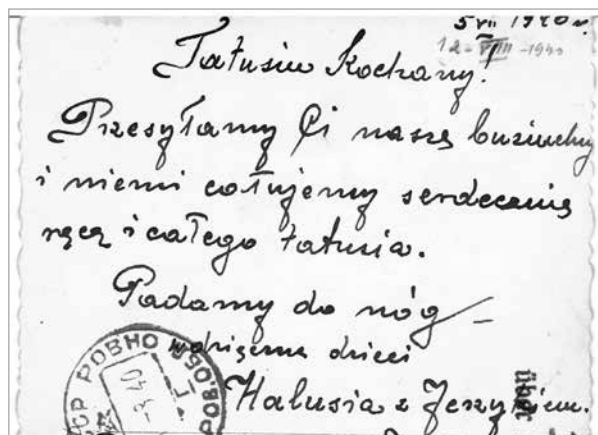 5 VII 1940 r.
12-VIII-1940
Tatusiu Kochany!
Przesyłamy Ci naszę buziuchy
i niemi całujemy serdecznie
ręcę i całego tatusia.
Padamy do nóg –
wdzięczne dzieci
Halusia z Jerzykiem.
РОВНО
über